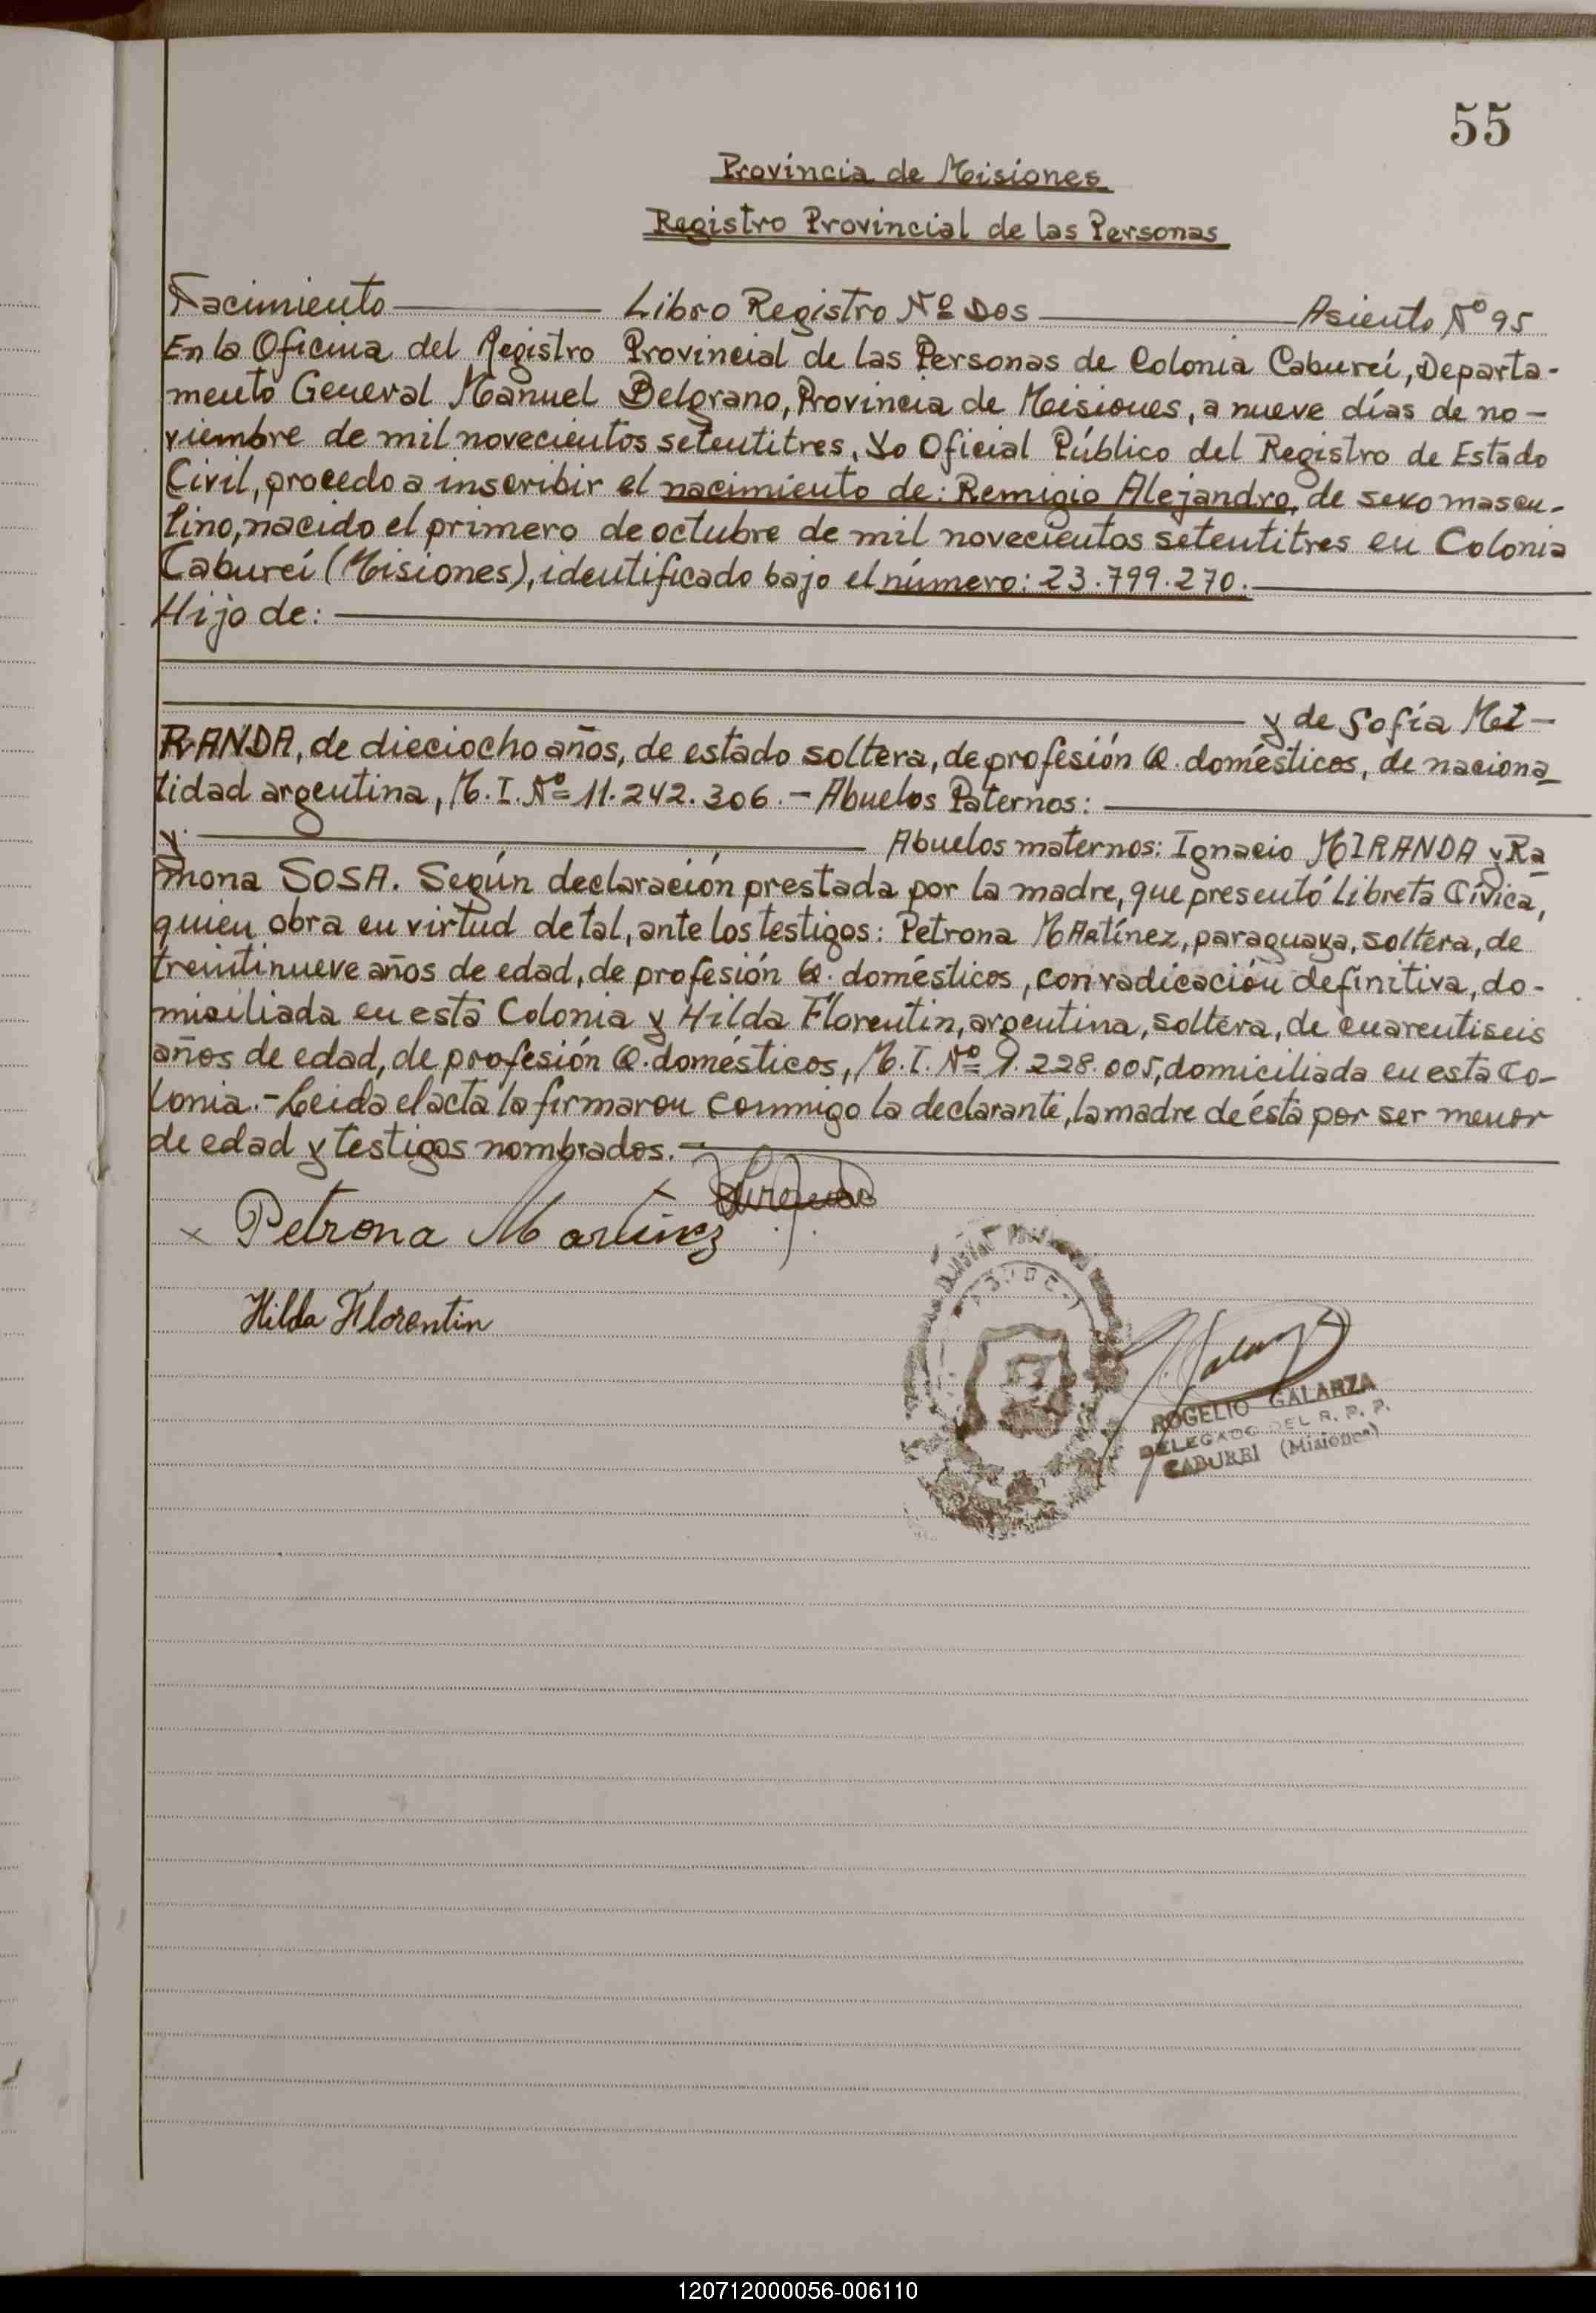 55
Provincia de Misiones
Registro Provincial de las Personas
Nacimiento Libro Registro Nº Dos Asiento Nº 95
En la Oficina del Registro Provincial de las Personas de Colonia Cabureí, Departa-
mento General Manuel Belgrano, Provincia de Misiones, a nueve días de no-
viembre de mil novecientos setentitres, Yo Oficial Público del Registro de Estado
Civil, procedo a inscribir el nacimiento de: Remigio Alejandro, de sexo mascu-
lino, nacido el primero de octubre de mil novecientos setentitres en Colonia
Cabureí (Misiones), identificado bajo el número: 23.799.270.
Hijo de:
y de Sofía MI-
RANDA, de dieciocho años, de estado soltera, de profesión Q. domésticos, de naciona
lidad argentina, M. I. Nº 11.242.306. - Abuelos Paternos:
y. Abuelos maternos: Ignacio MIRANDA y Ra
mona SOSA. Según declaración prestada por la madre, que presentó Libreta Cívica,
quien obra en virtud de tal, ante los testigos: Petrona MARtínez, paraguaya, soltera, de
treintinueve años de edad, de profesión Q. domésticos, con radicación definitiva, do-
miciliada en esta Colonia y Hilda Florentin, argentina, soltera, de cuarentiseis
años de edad, de profesión Q. domésticos, M. I. Nº 9.228.005, domiciliada en esta Co-
lonia. - Leida el acta la firmaron conmigo la declarante, la madre de ésta por ser menor
de edad y testigos nombrados. -
x
x Petrona Martinez
Hilda Florentin
ROGELIO GALARZA
DELEGADO DEL R. P. P.
CABUREI (Misiones)
120712000056-006110